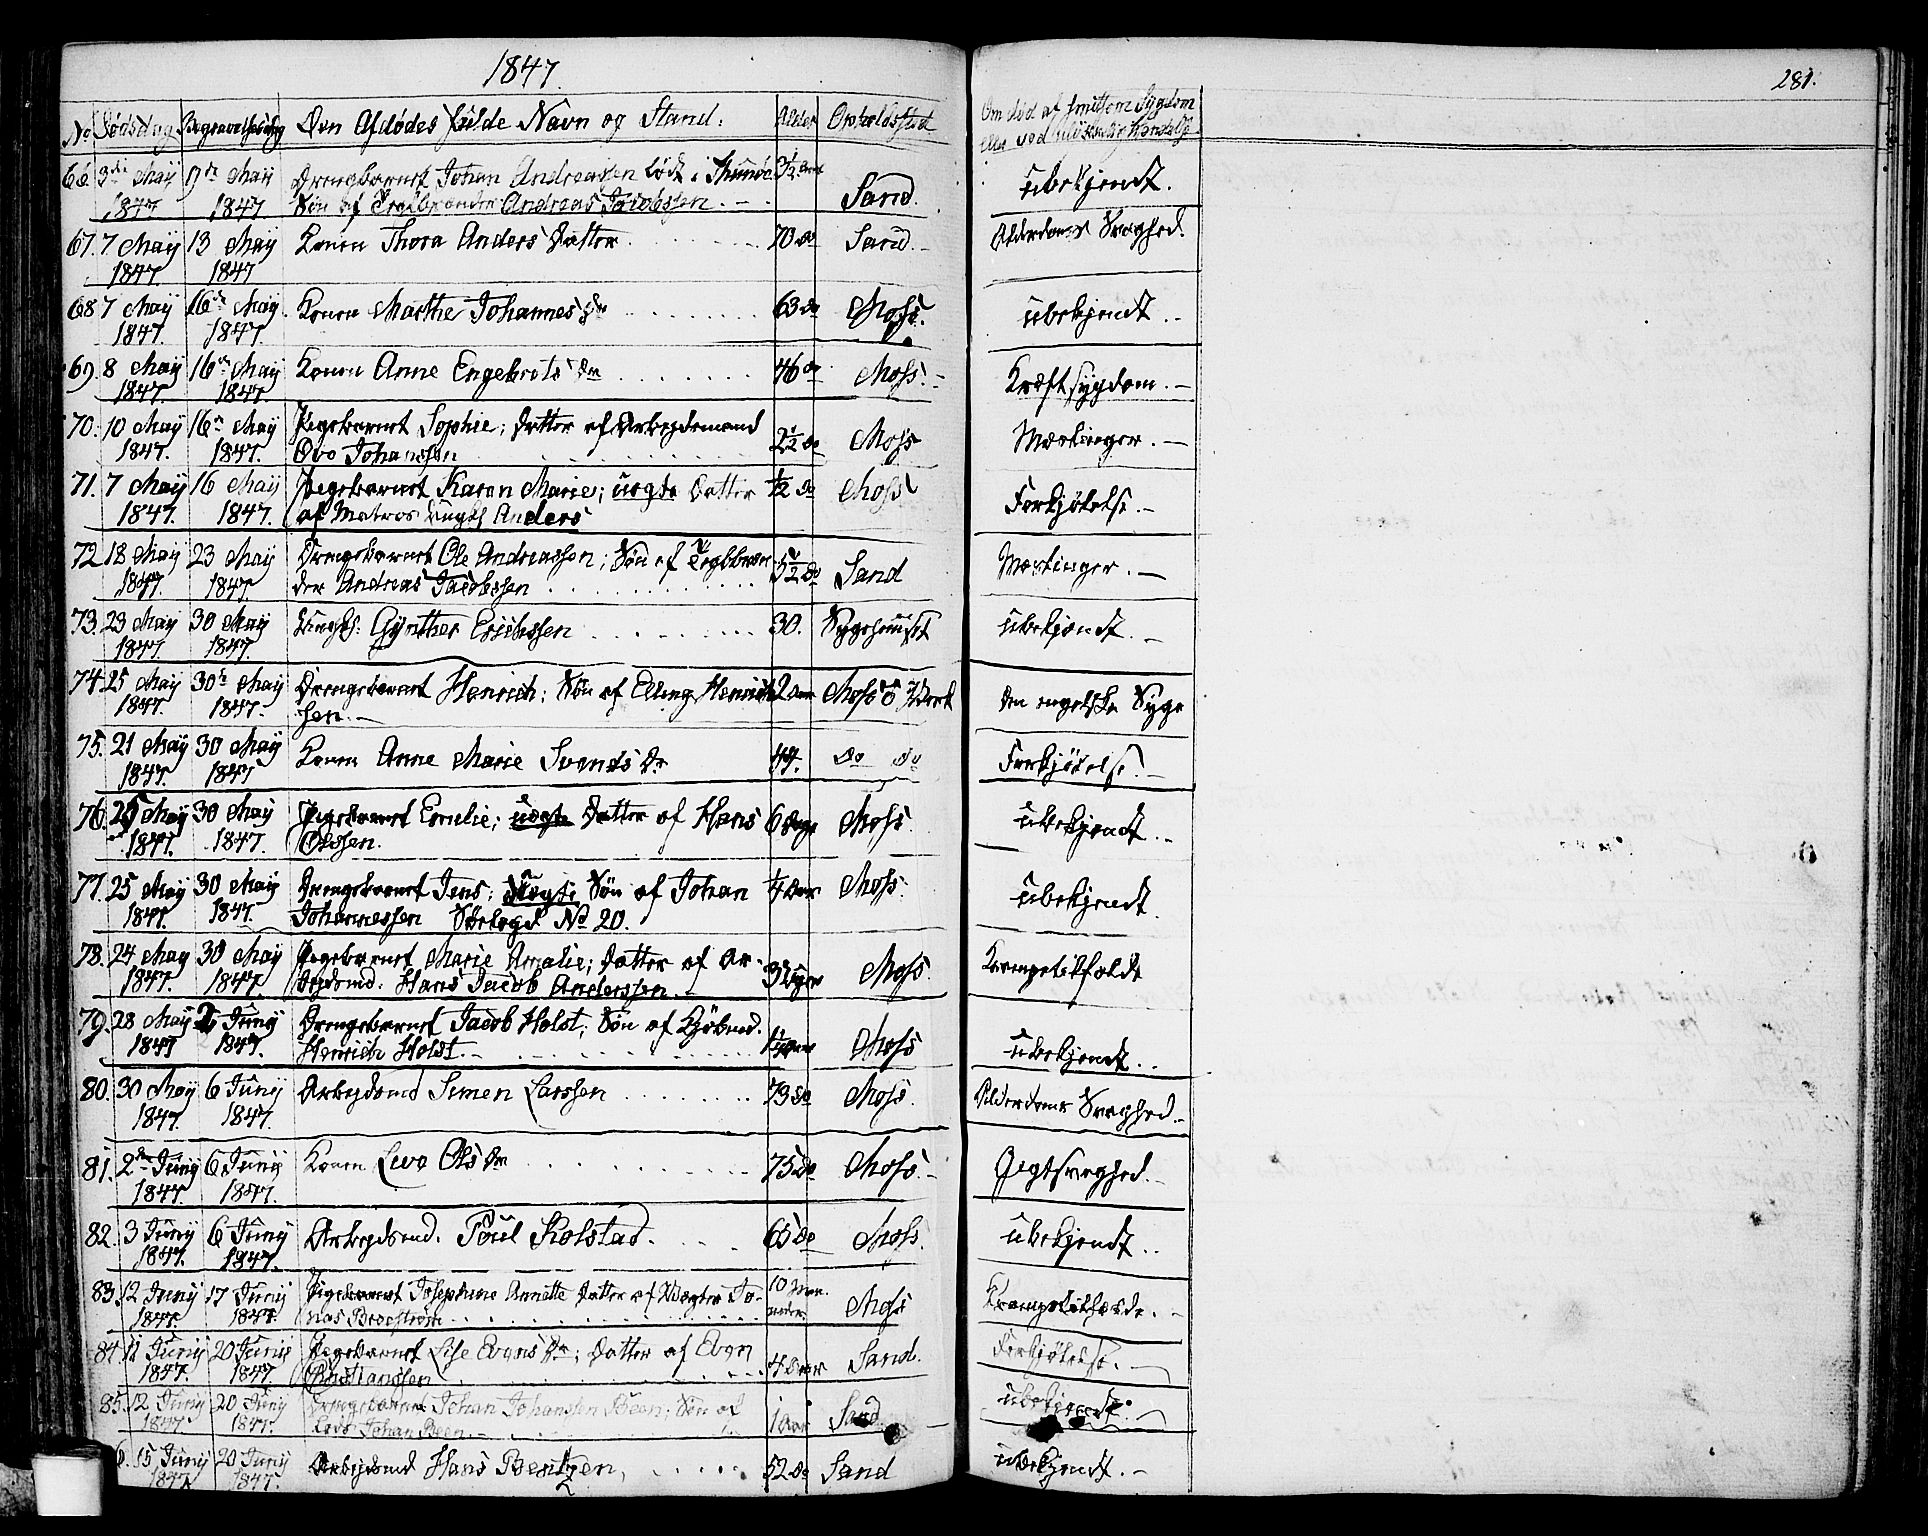 1847.
281.
No Dødsdag Begravelsesdag Den Afdødes fulde Navn og Stand. Alder Opholdssted Om død af smitsom Sygdom
eller ved ulykkelig Hændelse
66 3die Maij 9de Maij Drengebarnet Johan Andreassen født i Thrunde 3½ Aar Sand. ubekjendt.
1847 1847 Søn af Teglbrænder Andreas Jacobssen.
67. 7 Maij 13 Maij Konen Thora Anders Datter 70 do Sand. Alderdoms Svaghed.
1847. 1847
68 7 Maij 16de Maij Konen Marthe Johannes Dr 63 do Moss. ubekjendt.
1847. 1847.
69. 8 Maij 16de Maij Konen Anne Engebrets Dr 46 do Moss. Kræftsygdom.
1847. 1847.
70. 10 Maij 16de Maij Pigebarnet Sophie; Datter af Arbejdsmand 2½ do Moss Mæslinger.
1847. 1847. Ovo Johanssen
71. 7 Maij 16 Maij Pigebarnet Karen Marie; uægte Datter ½ do Moss Forkjølelse.
1847. 1847. af Matros Ungk. Anders
72 18 Maij 23 Maij Drengebarnet Ole Andreassen; Søn af Teglbræn- 5½ do Sand Mæslinger.
1847. 1847. der Andreas Jacobssen
73. 23 Maij 30 Maij Ungk. Gynther Erichssen 30. Sygehuuset ubekjendt.
1847. 1847.
74. 25 Maij 30te Maij Drengebarnet Henrich; Søn af Elling Henrich- 2 Aar Moss Værk den engelske Syge
1847. 1847. sen.
75. 21 Maij 30 Maij Konen Anne Marie Svends Dr 44. do do Forkjølelse.
1847. 1847
76. 25 Maij 30 Maij Pigebarnet Emelie; uægte Datter af Hans 6 Dage Moss. ubekjendt.
1847. 1847. Olssen.
77. 25 Maij 30 Maij Drengebarnet Jens; uægte Søn af Johan ¼ Aar Moss. ubekjendt.
1847. 1847. Johannessen No 20.
78. 24 Maij 30 Maij Pigebarnet Marie Amalie; Datter af Ar- 3 Uger Moss. Krampetilfælde
1847. 1847. bejdsmd. Hans Jacob Anderssen.
79. 28 Maij 2 Junij Drengebarnet Jacob Holst; Søn af Kjøbmd. Moss ubekjendt.
1847 1847. Henrich Holst.
80. 30 Maij 6 Junij Arbejdsmd Simen Larssen 73 do Moss. Alderdoms Svaghed.
1847. 1847.
81. 2den Junij 6 Junij Konen Live Ols Dr 75 do Moss. Gigtsvaghed.
1847. 1847.
82. 3 Junij 6 Junij Arbejdsmd. Poul Kolstad. 65 do Moss. ubekjendt.
1847. 1847.
83. 12 Junij 17 Junij Pigebarnet Josephine Annette Datter af Vægter Jo- 10 Maa- Moss Krampetilfælde.
1847. 1847. nas Brostrøm neder
84 11 Junij 20 Junij Pigebarnet Lise Evens Dr; Datter af Even 4 Aar Sand. Forkjølelse.
1847. 1847. Christianssen
85. 12 Junij 20 Junij Drengebarnet Johan Johanssen Been; Søn af 1 Aar Sand ubekjendt.
1847. 1847. Lods Johan Been.
6. 15 Junij 20 Junij Arbejdsmd Hans Bentzen, 52 do Sand ubekjendt.
1847 1847.